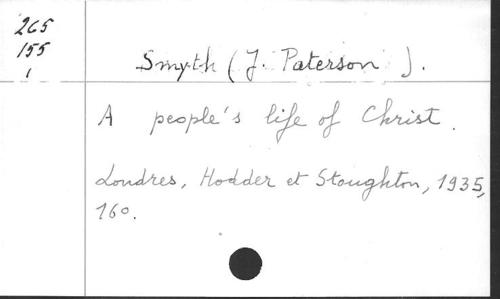 265
155
1
Smyth (J. Paterson).
A people's life of Christ.
Londres, Hodder et Stoughton, 1935,
16º.